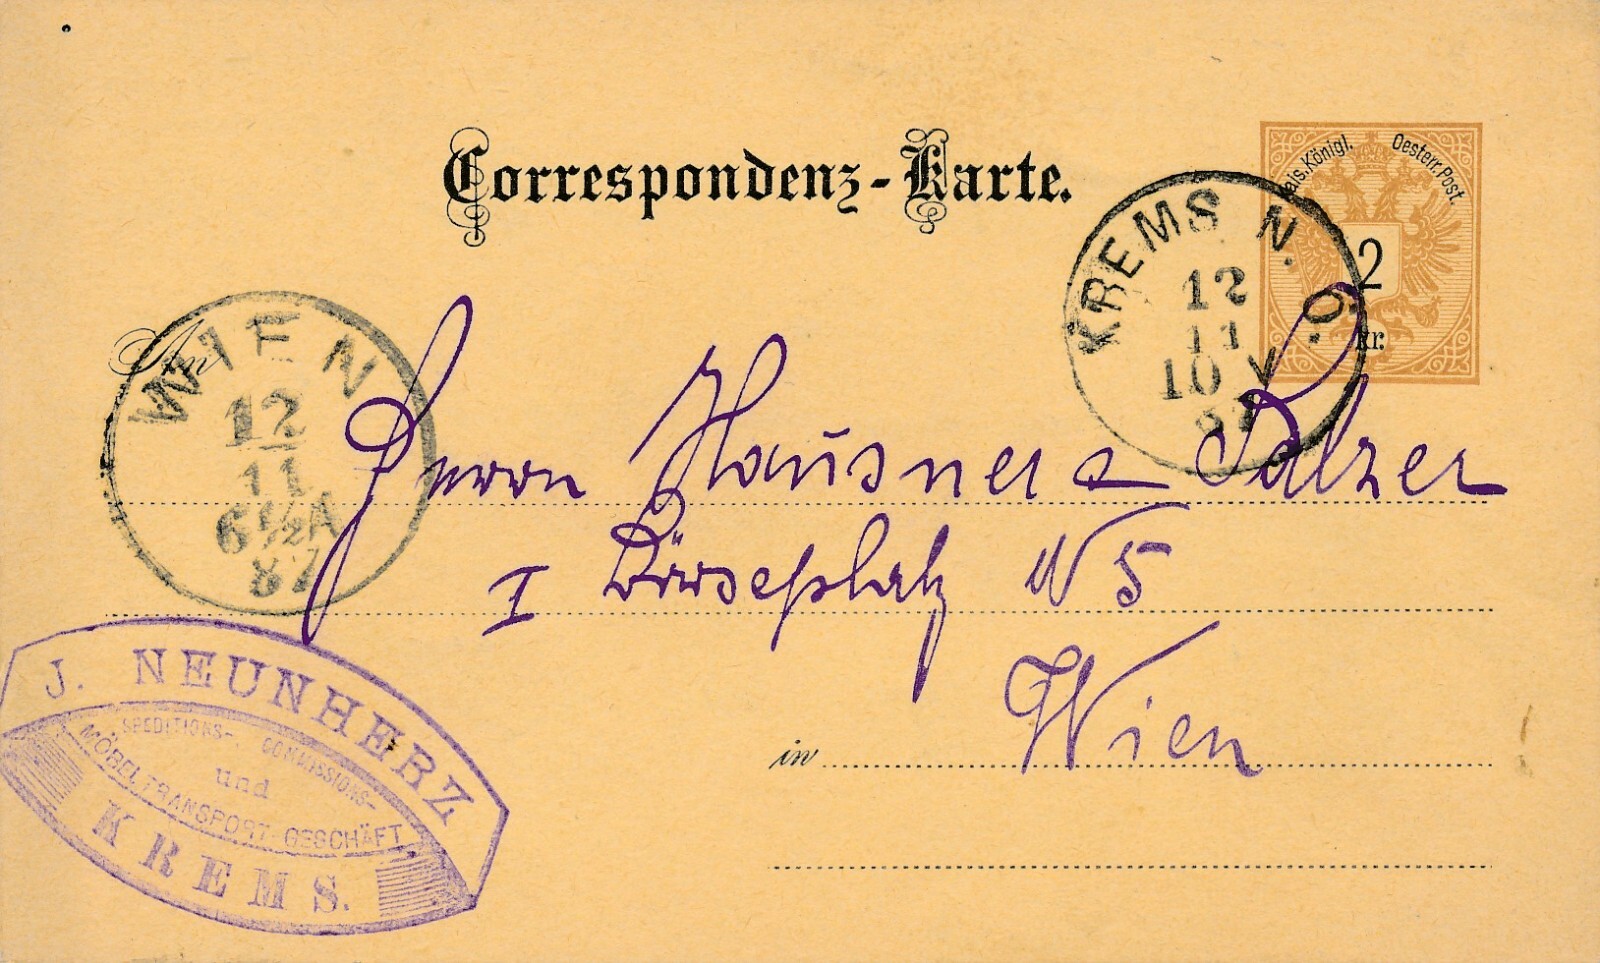 Correspondenz-Karte.
Kais. Königl. Oesterr. Post.
2
kr.
KREMS N. Ö.
12
11
10 V
87
WIEN
12
11
6 ½ A
87
An
Herrn Hausner & Salzer
I Börseplatz N 5
in Wien
J. NEUNHERZ
SPEDITIONS- COMMISSIONS-
und
MÖBELTRANSPORT-GESCHÄFT
KREMS.